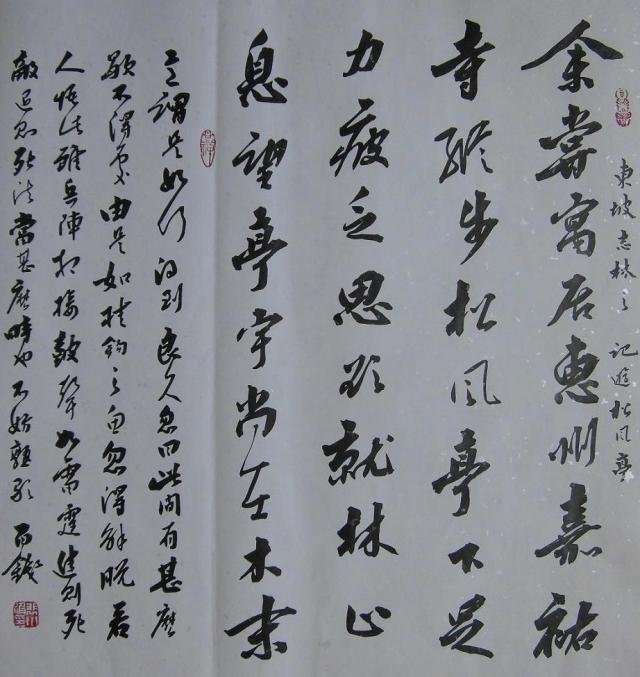 東坡志林之 記遊松風亭
余嘗寓居惠州嘉祐
寺縱步松風亭下足
力疲乏思欲就林止
息望亭宇尚在木末
意謂是如何得到良久忽曰此間有甚麼
歇不得處由是如挂鉤之魚忽得解脫若
人悟此雖兵陣相接鼓聲如雷霆進則死
敵退則死法當甚麼時也不妨熟歇